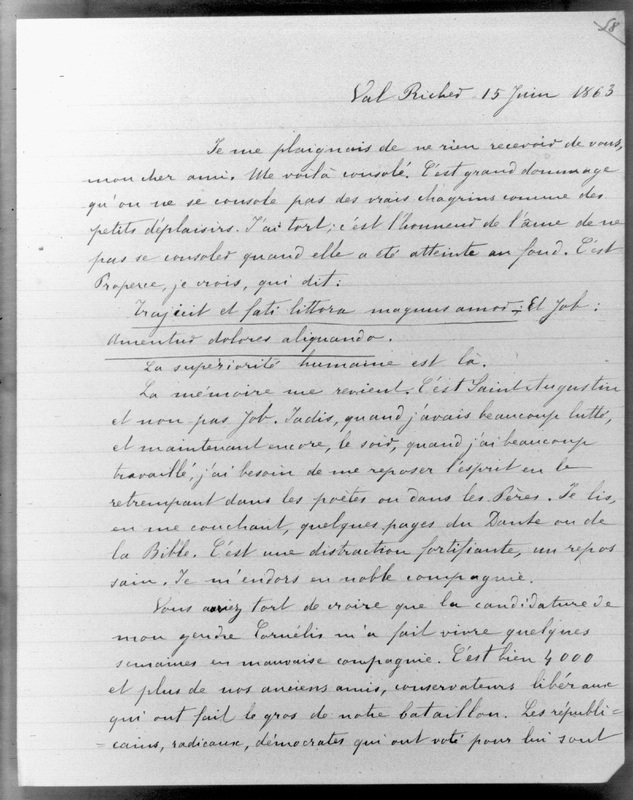 58
Val Richer 15 Juin 1863
Je me plaignais de ne rien recevoir de vous,
mon cher ami. Me voilà consolé. C'est grand dommage
qu'on ne se console pas des vrais chagrins comme des
petits déplaisirs. J'ai tort; c'est l'honneur de l'âme de ne
pas se consoler quand elle a été atteinte au fond. C'est
Properce, je crois, qui dit:
Trajicit et fati littora magnus amor; Et Job:
Amentur dolores aliquando.
La supériorité humaine est là.
La mémoire me revient. C'est Saint Augustin
et non pas Job. Jadis, quand j'avais beaucoup lutté,
et maintenant encore, le soir, quand j'ai beaucoup
travaillé, j'ai besoin de me reposer l'esprit en le
retrempant dans les poètes ou dans les Pères. Je lis,
en me couchant, quelques pages du Dante ou de
la Bible. C'est une distraction fortifiante, un repos
sain. Je m'endors en noble compagnie.
Vous auriez tort de croire que la candidature de
mon gendre Cornélis m'a fait vivre quelques
semaines en mauvaise compagnie. C'est bien 4000
et plus de nos anciens amis, conservateurs libéraux
qui ont fait le gros de notre bataillon. Les républi=
=cains, radicaux, démocrates qui ont voté pour lui sont